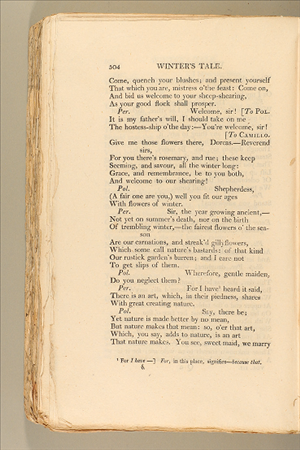 504 WINTER'S TALE.
Come, quench your blushes; and present yourself
That which you are, mistress o'the feast: Come on,
And bid us welcome to your sheep-shearing,
As your good flock shall prosper.
Per. Welcome, sir! [To Pol.
It is my father's will, I should take on me
The hostess-ship o'the day:—You're welcome, sir!
[To Camillo.
Give me those flowers there, Dorcas.—Reverend
sirs,
For you there's rosemary, and rue; these keep
Seeming, and savour, all the winter long:
Grace, and remembrance, be to you both,
And welcome to our shearing!
Pol. Shepherdess,
(A fair one are you,) well you fit our ages
With flowers of winter.
Per. Sir, the year growing ancient,—
Not yet on summer's death, nor on the birth
Of trembling winter,—the fairest flowers o' the sea-
son
Are our carnations, and streak'd gillyflowers,
Which some call nature's bastards: of that kind
Our rustick garden's barren; and I care not
To get slips of them.
Pol. Wherefore, gentle maiden,
Do you neglect them?
Per. For I have¹ heard it said,
There is an art, which, in their piedness, shares
With great creating nature.
Pol. Say, there be;
Yet nature is made better by no mean,
But nature makes that mean: so, o'er that art,
Which, you say, adds to nature, is an art
That nature makes. You see, sweet maid, we marry
¹ For I have —] For, in this place, signifies—because that.
6.